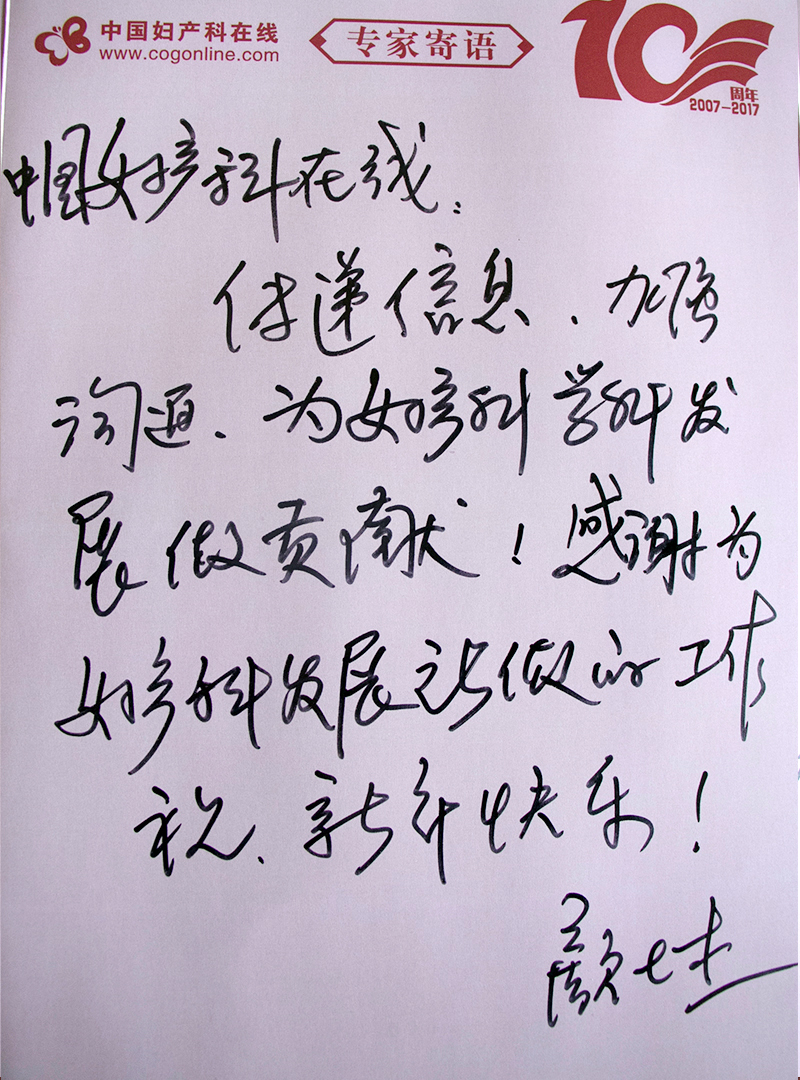 中国妇产科在线
www.cogonline.com
专家寄语
10
周年
2007-2017
中国妇产科在线:
传递信息、加强
沟通、为妇产科学科发
展做贡献!感谢为
妇产科发展所做的工作
祝、新年快乐!
颜士杰